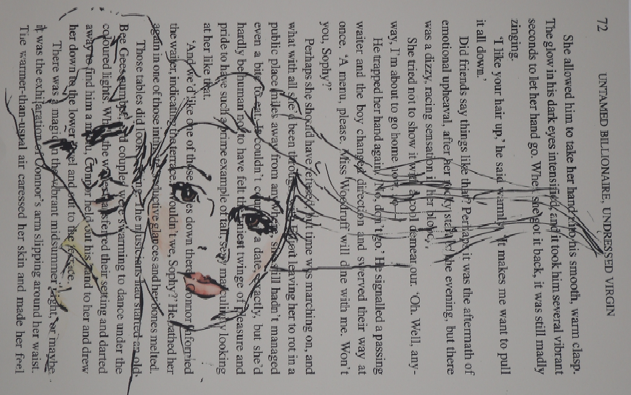 72 UNTAMED BILLIONAIRE, UNDRESSED VIRGIN
She allowed him to take her hand into his smooth, warm clasp.
The glow in his dark eyes intensified, and it took him several vibrant
seconds to let her hand go. When she got it back, it was still madly
zinging.
'I like your hair up,' he said warmly. 'It makes me want to pull
it all down.'
Did friends say things like that? Perhaps it was the aftermath of
emotional upheaval, after her rocky start to the evening, but there
was a dizzy, racing sensation in her blood.
She tried not to show it with a cool demeanour. 'Oh. Well, any-
way, I'm about to go home now,
He trapped her hand again. 'No, don't go.' He signalled a passing
waiter and the boy changed direction and swerved their way at
once. 'A menu, please. Miss Woodruff will dine with me. Won't
you, Sophy?'
Perhaps she should have refused, but time was marching on, and
what with all she'd been through, leaving her to rot in a
public place miles away from she still hadn't managed
even a bite to eat, she couldn't a date, exactly, but she'd
hardly be human not to have felt the twinge of pleasure and
pride to have such a prime example of masculinity looking
at her like that.
'And we'd like one of those down there,' Connor informed
the waiter, indicating the terrace. 'Wouldn't we, Sophy?' He bathed her
again in one of those seductive glances and her bones melted.
Those tables did look The musicians had started an old
Bee Gees number, and couples were swarming to dance under the
coloured lights. When the waiter their setting and darted
away to find him a Connor held out his hand to her and drew
her down to the lower level and out to the terrace.
There was magic in the vibrant midsummer night, or maybe
it was the exhilaration of Connor's arm slipping around her waist.
The warmer-than-usual air caressed her skin and made her feel